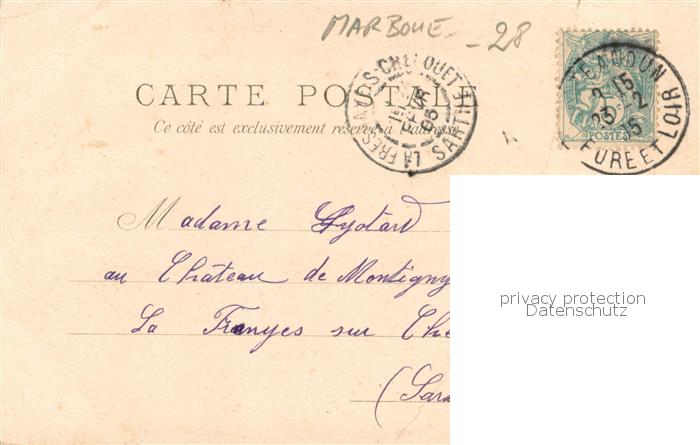 MARBOUE - 28
CARTE POSTALE
Ce côté est exclusivement réservé à l'adresse
LA FRES SUR CHEDOUET
SARTHE
FEVR
05
EAUDUN
2 15
23 2
05
EURE ET LOIR
POSTES
Madame Gyotard
au Château de Montigny
La Fresnyes sur Che
(Sar
privacy protection
Datenschutz